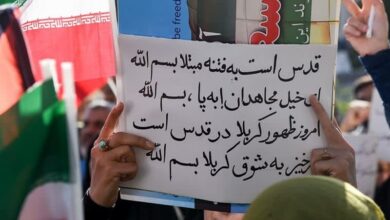 be free
ند این
قدس است به فتنه مبتلا بسم الله
خیل مجاهدان به پا، بسم الله
امروز ظهور کربلا در قدس است
خیز به شوق کربلا بسم الله